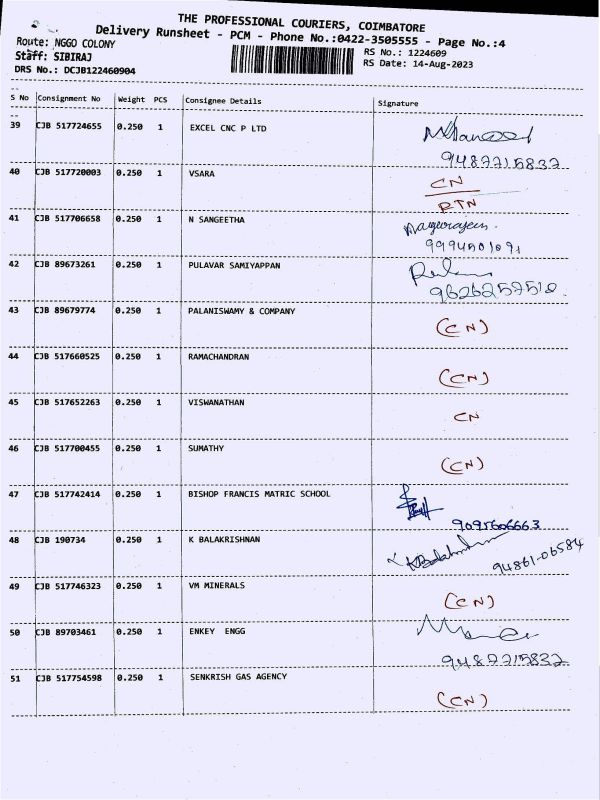 THE PROFESSIONAL COURIERS, COIMBATORE
Delivery Runsheet - PCM - Phone No.:0422-3505555 - Page No.:4
Route: NGGO COLONY
RS No.: 1224609
Staff: SIBIRAJ
RS Date: 14-Aug-2023
DRS No.: DCJB122460904
S No Consignment No Weight PCS Consignee Details Signature
39 CJB 517724655 0.250 1 EXCEL CNC P LTD
9487215837
40 CJB 517720003 0.250 1 VSARA CN
RTN
41 CJB 517706658 0.250 1 N SANGEETHA
42 CJB 89673261 0.250 1 PULAVAR SAMIYAPPAN
9626257518
43 CJB 89679774 0.250 1 PALANISWAMY & COMPANY (CN)
44 CJB 517660525 0.250 1 RAMACHANDRAN (CN)
45 CJB 517652263 0.250 1 VISWANATHAN CN
46 CJB 517700455 0.250 1 SUMATHY (CN)
47 CJB 517742414 0.250 1 BISHOP FRANCIS MATRIC SCHOOL
9095606663
48 CJB 190734 0.250 1 K BALAKRISHNAN K Balakrishnan
94861-06584
49 CJB 517746323 0.250 1 VM MINERALS (CN)
50 CJB 89703461 0.250 1 ENKEY ENGG
9487215832
51 CJB 517754598 0.250 1 SENKRISH GAS AGENCY (CN)